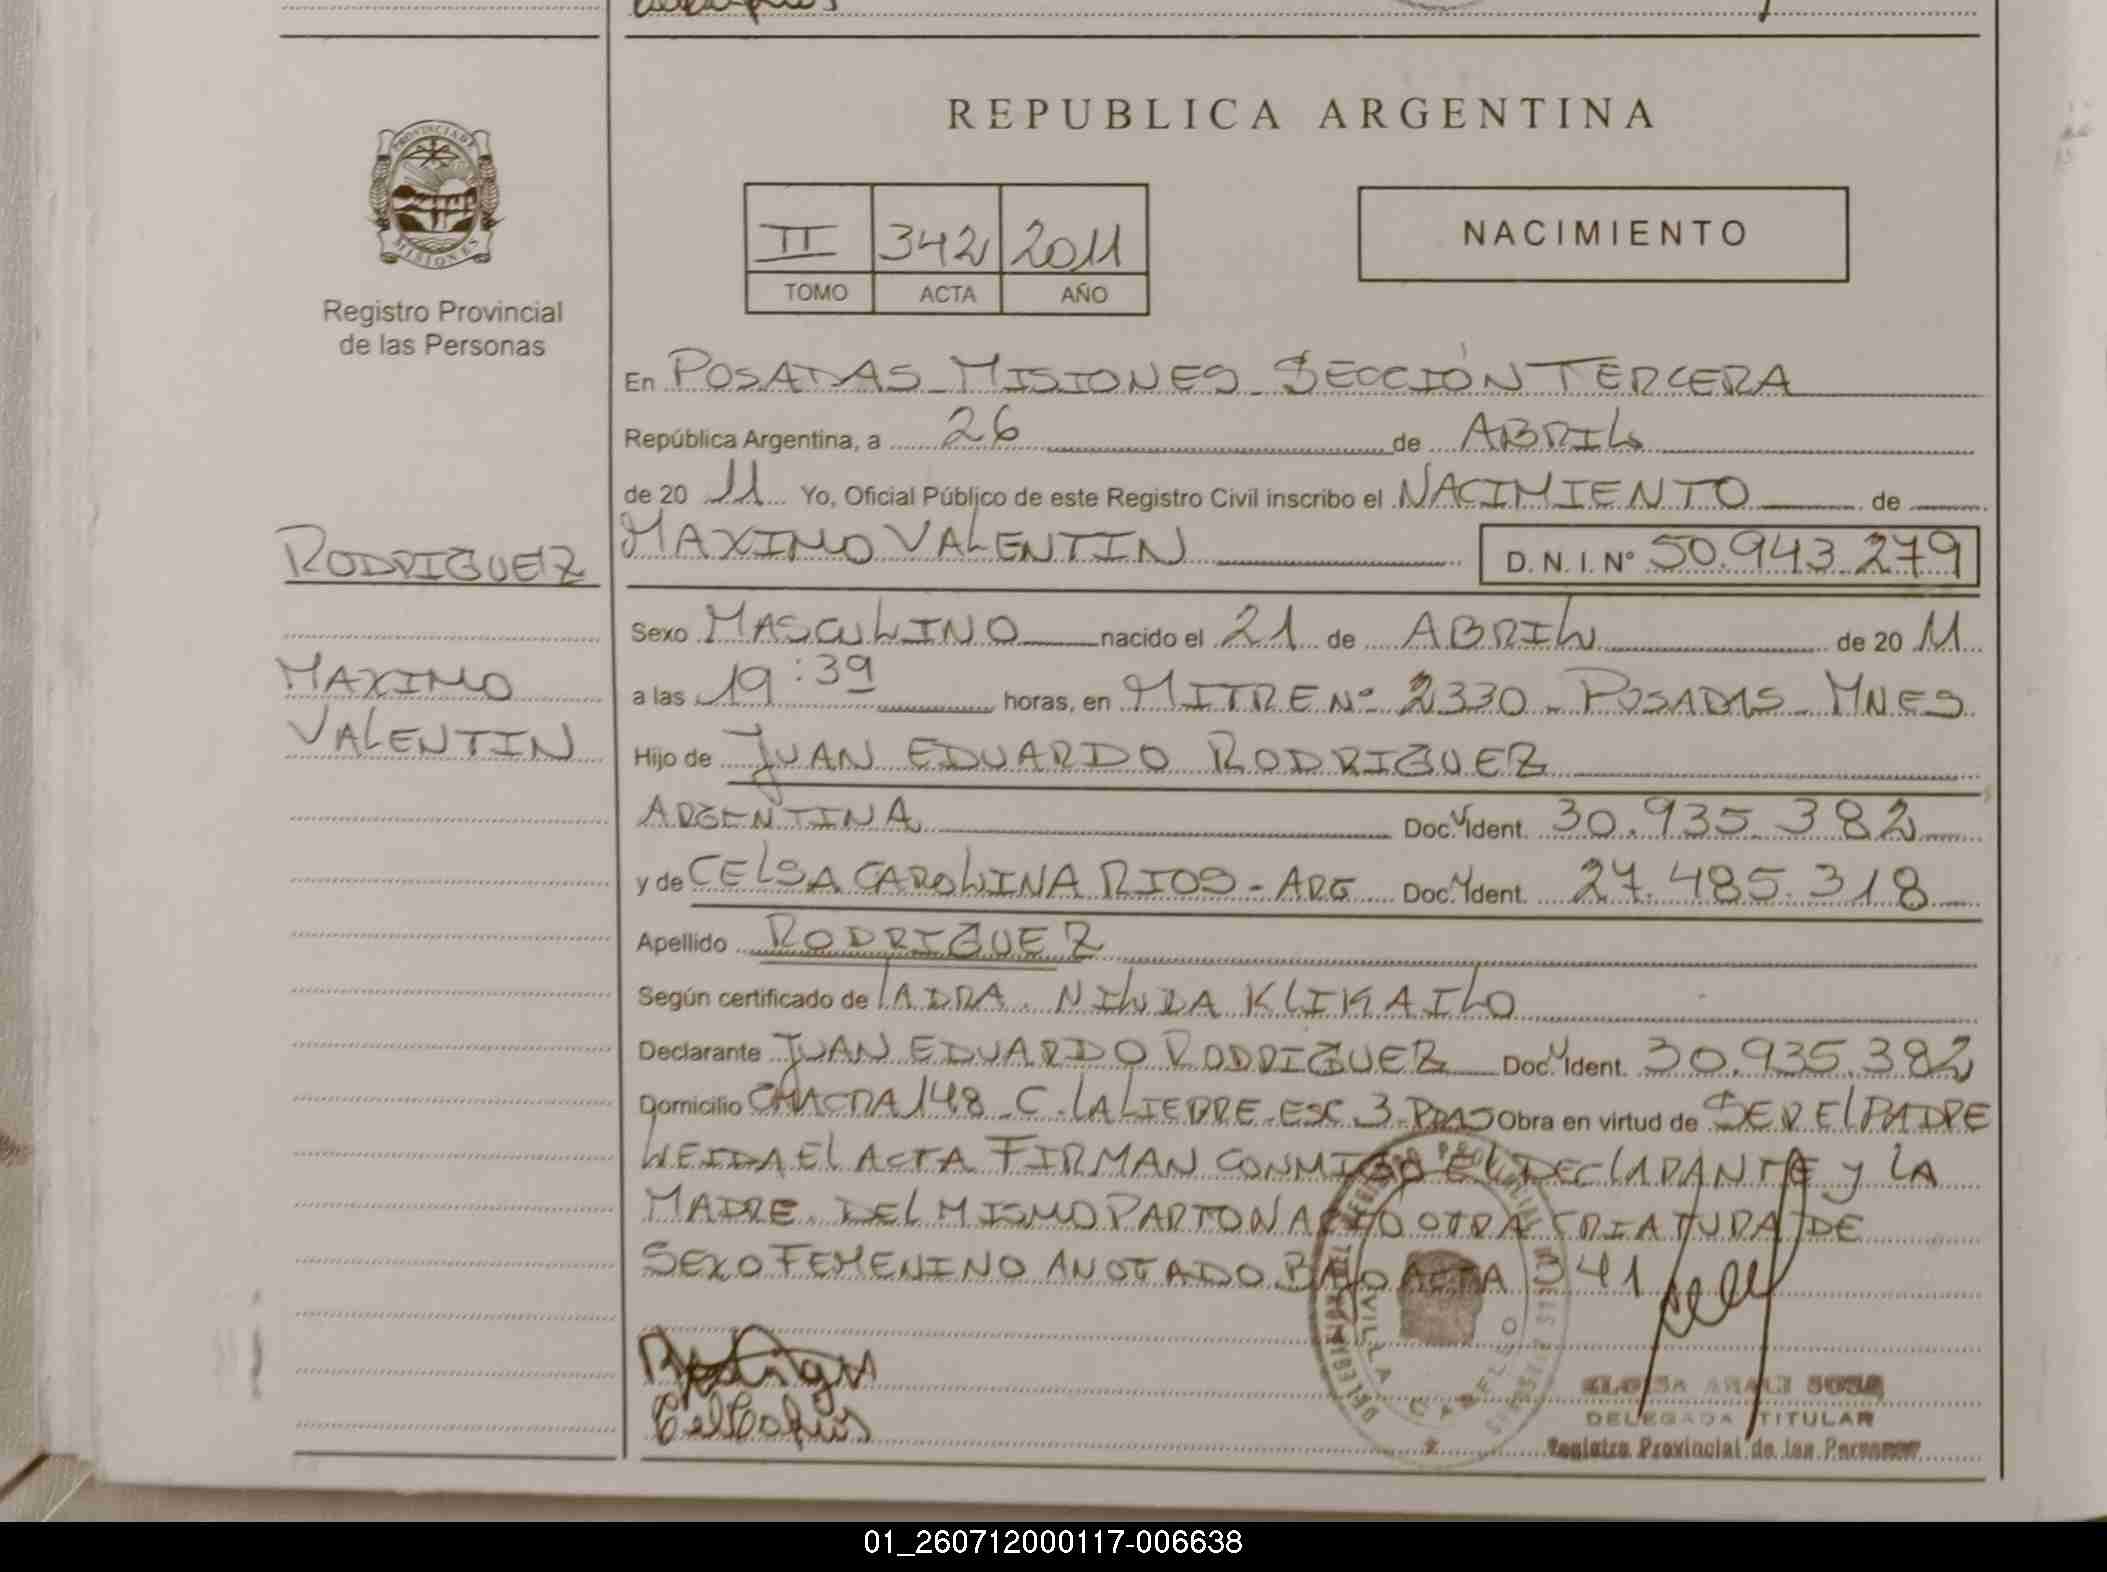 REPUBLICA ARGENTINA
PROVINCIA DE
MISIONES
Registro Provincial
de las Personas
II 342 2011
TOMO ACTA AÑO
NACIMIENTO
En POSADAS - MISIONES - SECCIÓN TERCERA
República Argentina, a 26 de ABRIL
de 20 11 Yo, Oficial Público de este Registro Civil inscribo el NACIMIENTO de
RODRIGUEZ
MAXIMO VALENTIN D.N.I. Nº 50.943.279
Sexo MASCULINO nacido el 21 de ABRIL de 20 11
MAXIMO
a las 19:39 horas, en MITRE Nº 2330 - POSADAS - MNES
VALENTIN
Hijo de JUAN EDUARDO RODRIGUEZ
ARGENTINA Doc. Ident. 30.935.382
y de CELSA CAROLINA RIOS - ARG Doc. Ident. 27.485.318
Apellido RODRIGUEZ
Según certificado de LA DRA. NILDA KLIKAILO
Declarante JUAN EDUARDO RODRIGUEZ Doc. Ident. 30.935.382
Domicilio CHACRA 148 - C. LALIERRE - ESC 3 - PDAS Obra en virtud de SER EL PADRE
LEIDA EL ACTA FIRMAN CONMIGO EL DECLARANTE Y LA
MADRE. DEL MISMO PARTO NACIO OTRA CRIATURA DE
SEXO FEMENINO ANOTADO BAJO ACTA 341
VILLA CABELLO
SOSA
DELEGADA TITULAR
Registro Provincial de las Personas
01_260712000117-006638